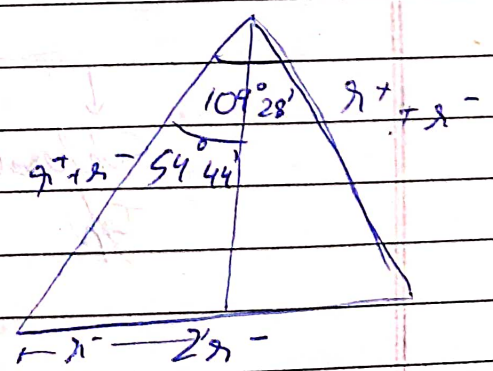 109°28'
r⁺ + r⁻
r⁺+r⁻
54°44'
r⁻
2r⁻